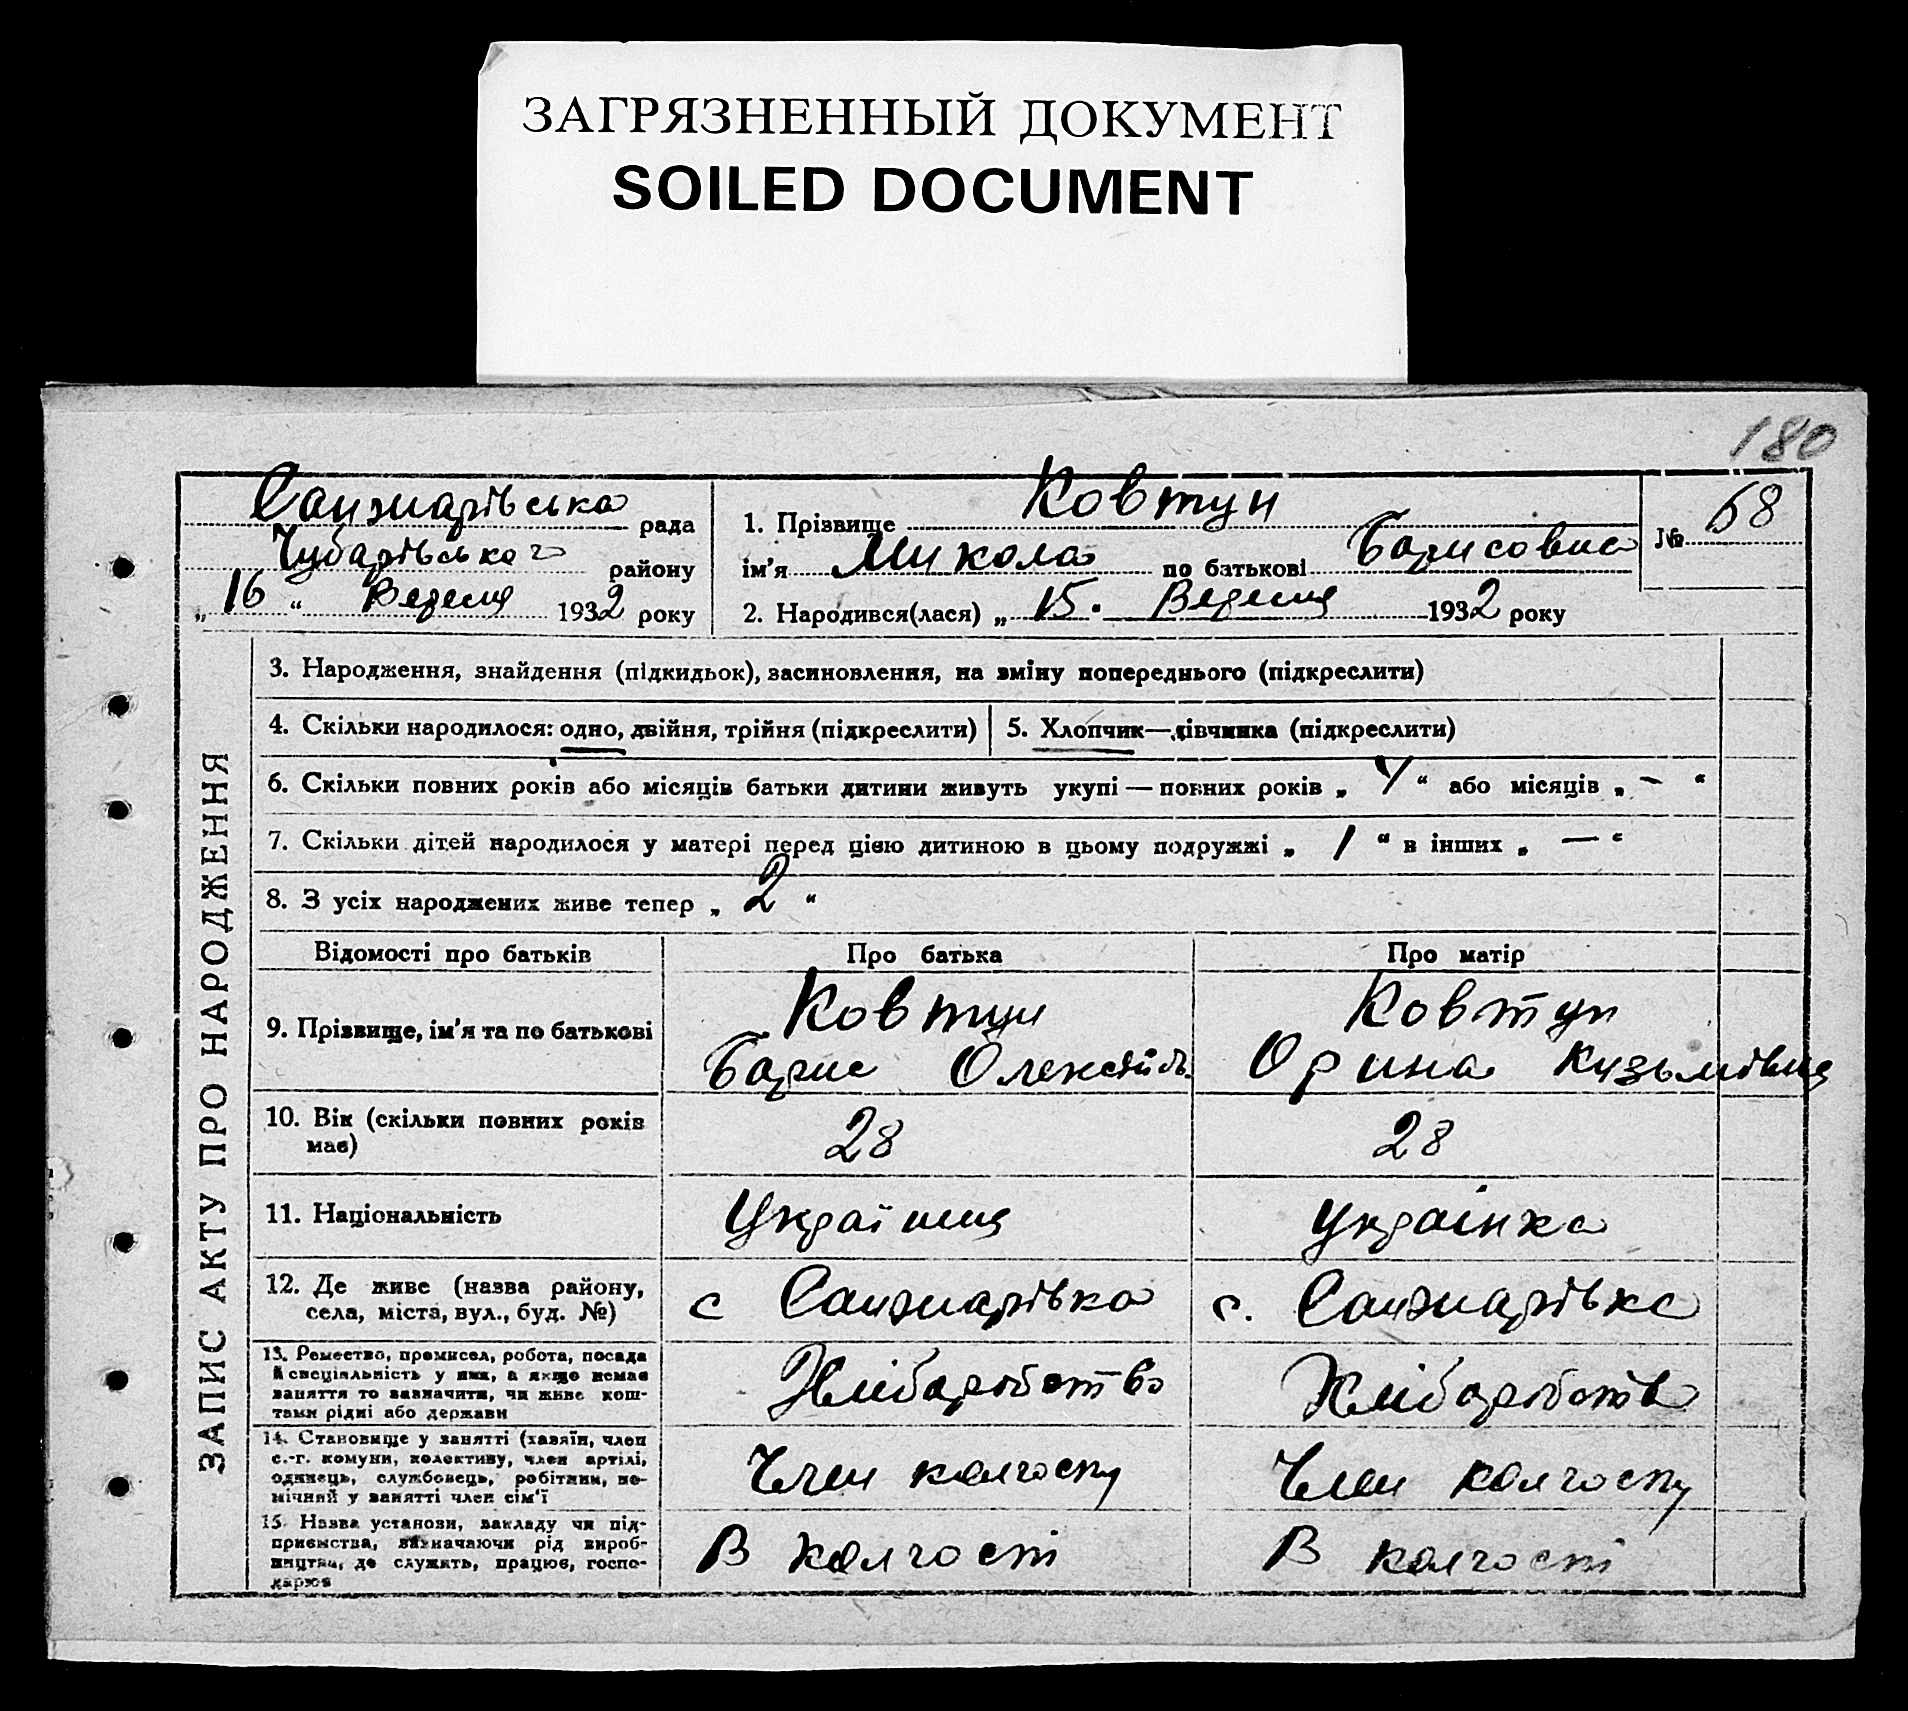 ЗАГРЯЗНЕННЫЙ ДОКУМЕНТ
SOILED DOCUMENT
180
Санжарівська рада
Чубарівського району
„ 16 “ Вересня 1932 року
1. Прізвище Ковтун
ім'я Микола по батькові Борисович
2. Народився(лася) „ 15. Вересня 1932 року
№ 68
ЗАПИС АКТУ ПРО НАРОДЖЕННЯ
3. Народження, знайдення (підкидьок), засиновлення, на зміну попереднього (підкреслити)
4. Скільки народилося: одно, двійня, трійня (підкреслити) 5. Хлопчик—дівчинка (підкреслити)
6. Скільки повних років або місяців батьки дитини живуть укупі — повних років „ “ або місяців „ – “
7. Скільки дітей народилося у матері перед цією дитиною в цьому подружжі „ 1 “ в інших „ — “
8. З усіх народжених живе тепер „ 2 “
Відомості про батьків Про батька Про матір
9. Прізвище, ім'я та по батькові
Ковтун
Борис
Ковтун
Орина Кузьмівна
10. Вік (скільки повних років
має)
28
28
11. Національність
Українец
Українка
12. Де живе (назва району,
села, міста, вул., буд. №)
с Санжарівка
с. Санжарівка
13. Ремество, промисел, робота, посада
й спеціяльність у них, а якщо немає
заняття то зазначити, чи живе кош-
тами рідні або держави
Хліборобство
Хліборобство
14. Становище у занятті (хазяїн, член
с.-г. комуни, колективу, член артілі,
одинець, службовець, робітник, по-
мічний у занятті член сім'ї
Член колгоспу
Член колгоспу
15. Назва установи, закладу чи під-
приємства, визначаючи рід вироб-
ництва, де служить, працює, госпо-
дарює
В колгоспі
В колгоспі